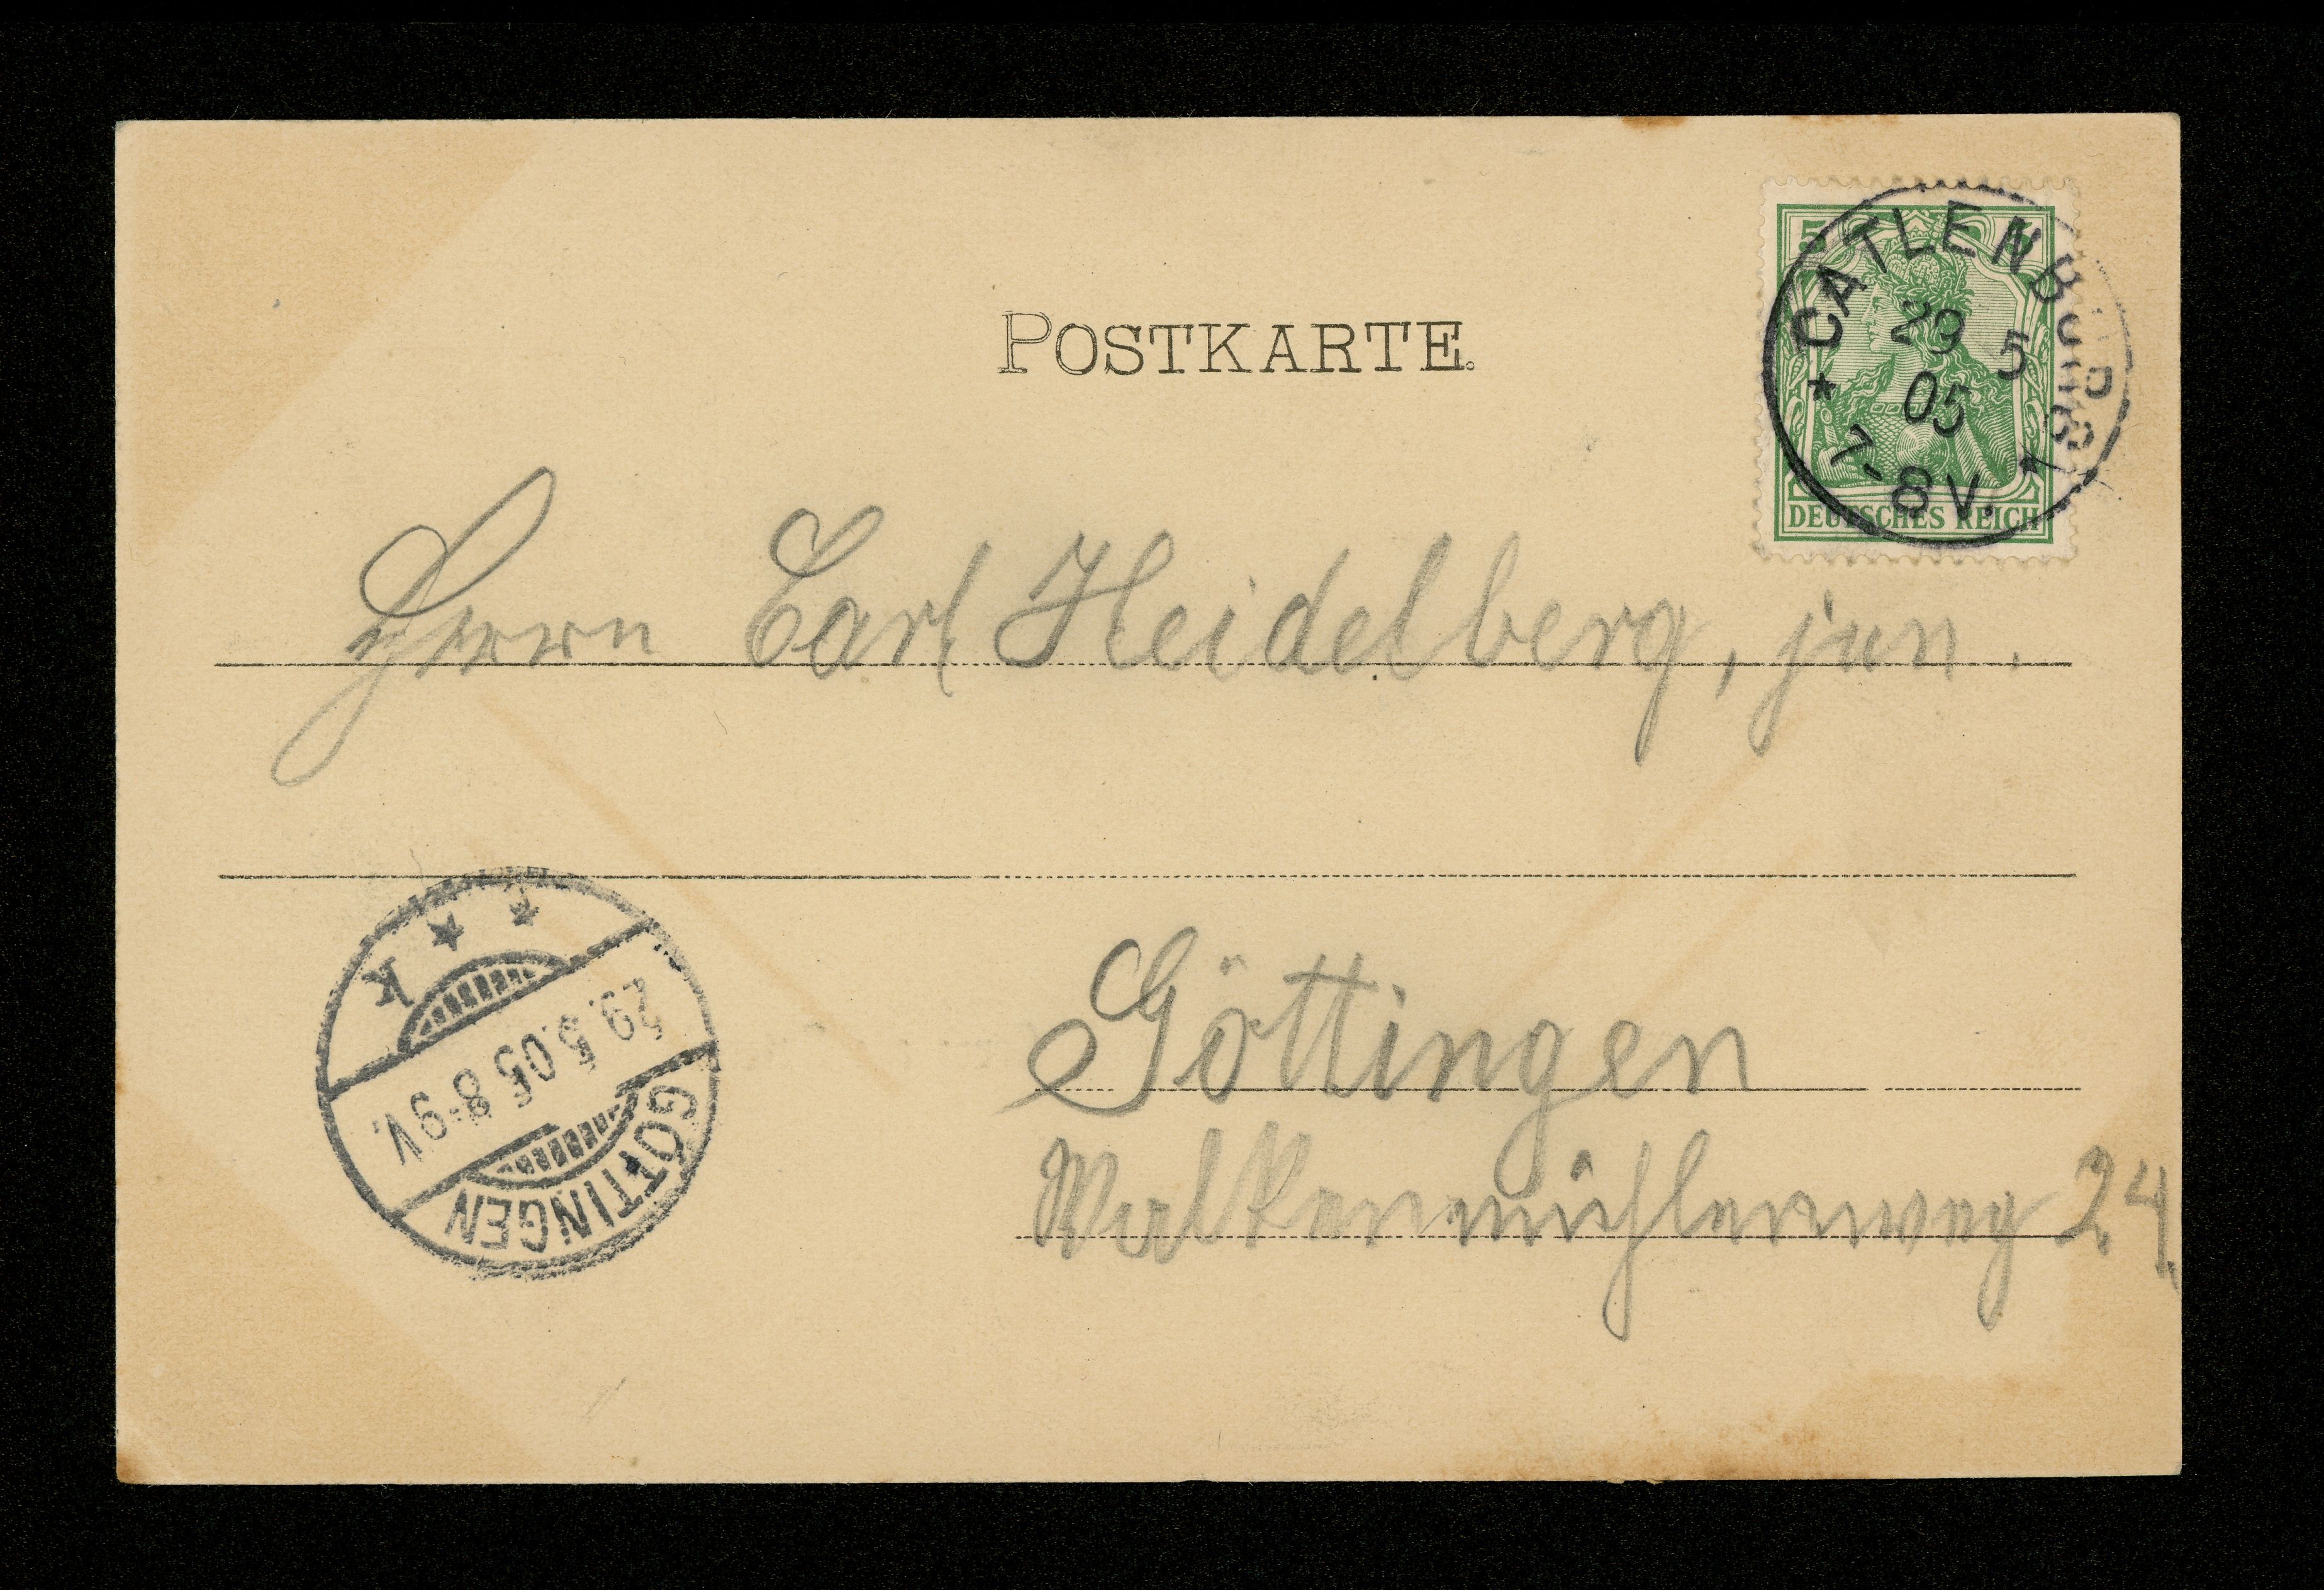 POSTKARTE.
5
DEUTSCHES REICH
* CATLENBURG *
29 5
05
7-8V.
Herrn Carl Heidelberg, jun.
Göttingen
Walkenmühlenweg 24
GÖTTINGEN
29.5.05.8-9V.
* * k